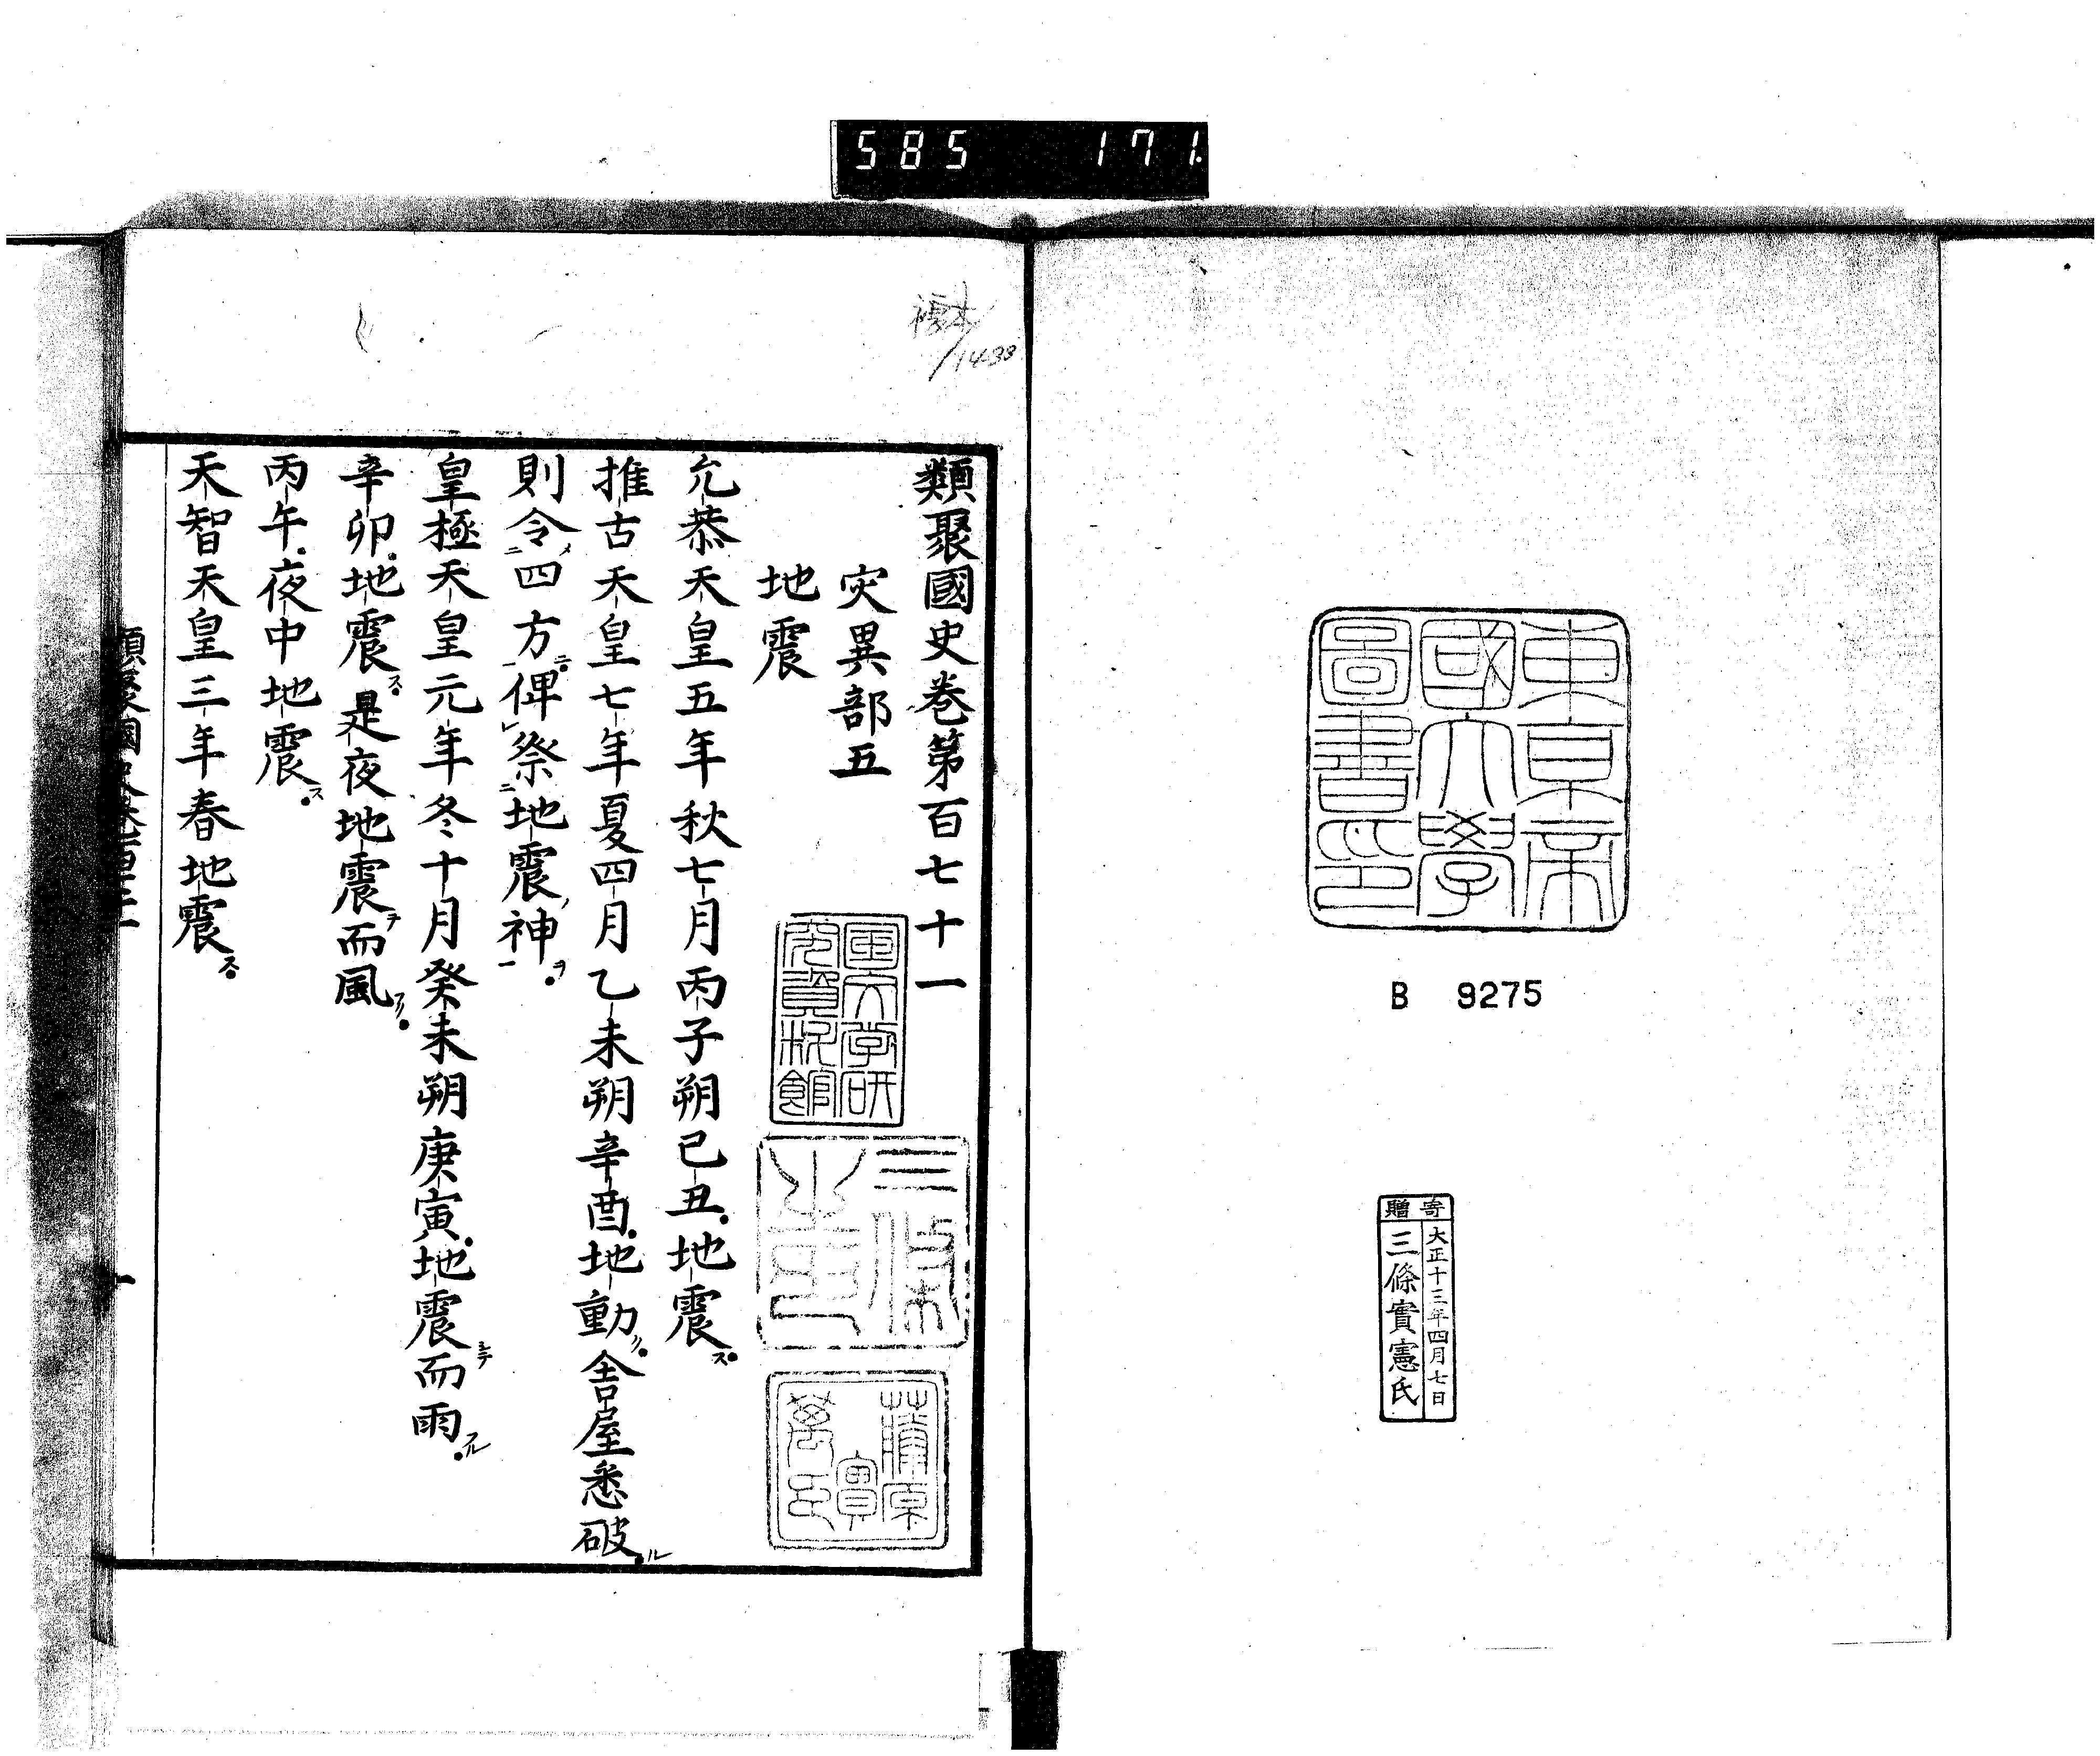 585 171
東京帝
國大學
圖書印
B 9275
寄贈
大正十三年四月七日
三條實憲氏
複本
1433
類聚國史巻第百七十一
灾異部五
地震
允恭天皇五年秋七月丙子朔己丑地震ス
推古天皇七年夏四月乙未朔辛酉地動リ舎屋悉破ル
則令四方俾祭地震神
皇極天皇元年冬十月癸未朔庚寅地震シテ而雨フル
辛卯地震ス是夜地震テ而風フリ
丙午夜中地震ス
天智天皇三年春地震ス
國文学研
究資料館
三條
藤原
實
萬
類聚國史巻百七十一
一